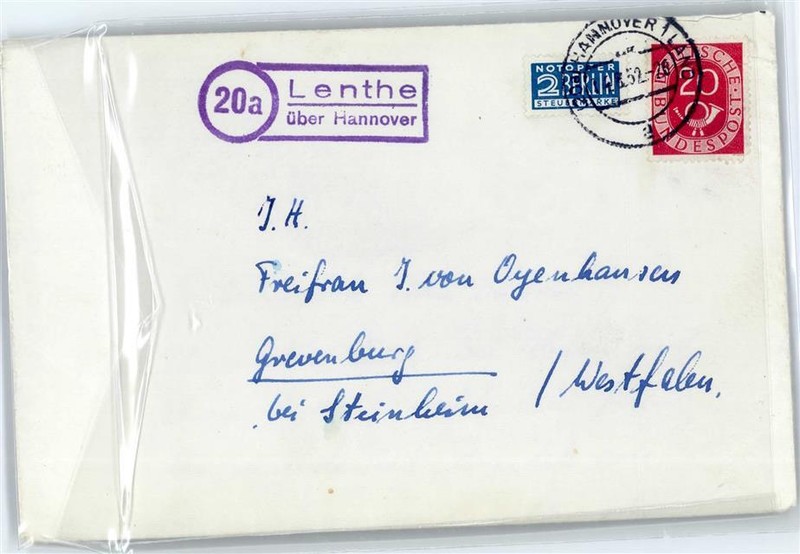 20a
Lenthe
über Hannover
NOTOPFER
2 BERLIN
STEUERMARKE
HANNOVER 1
DEUTSCHE
20
BUNDESPOST
J. H.
Freifrau J. von Oyenhausen
Grevenburg
bei Steinheim / Westfalen.